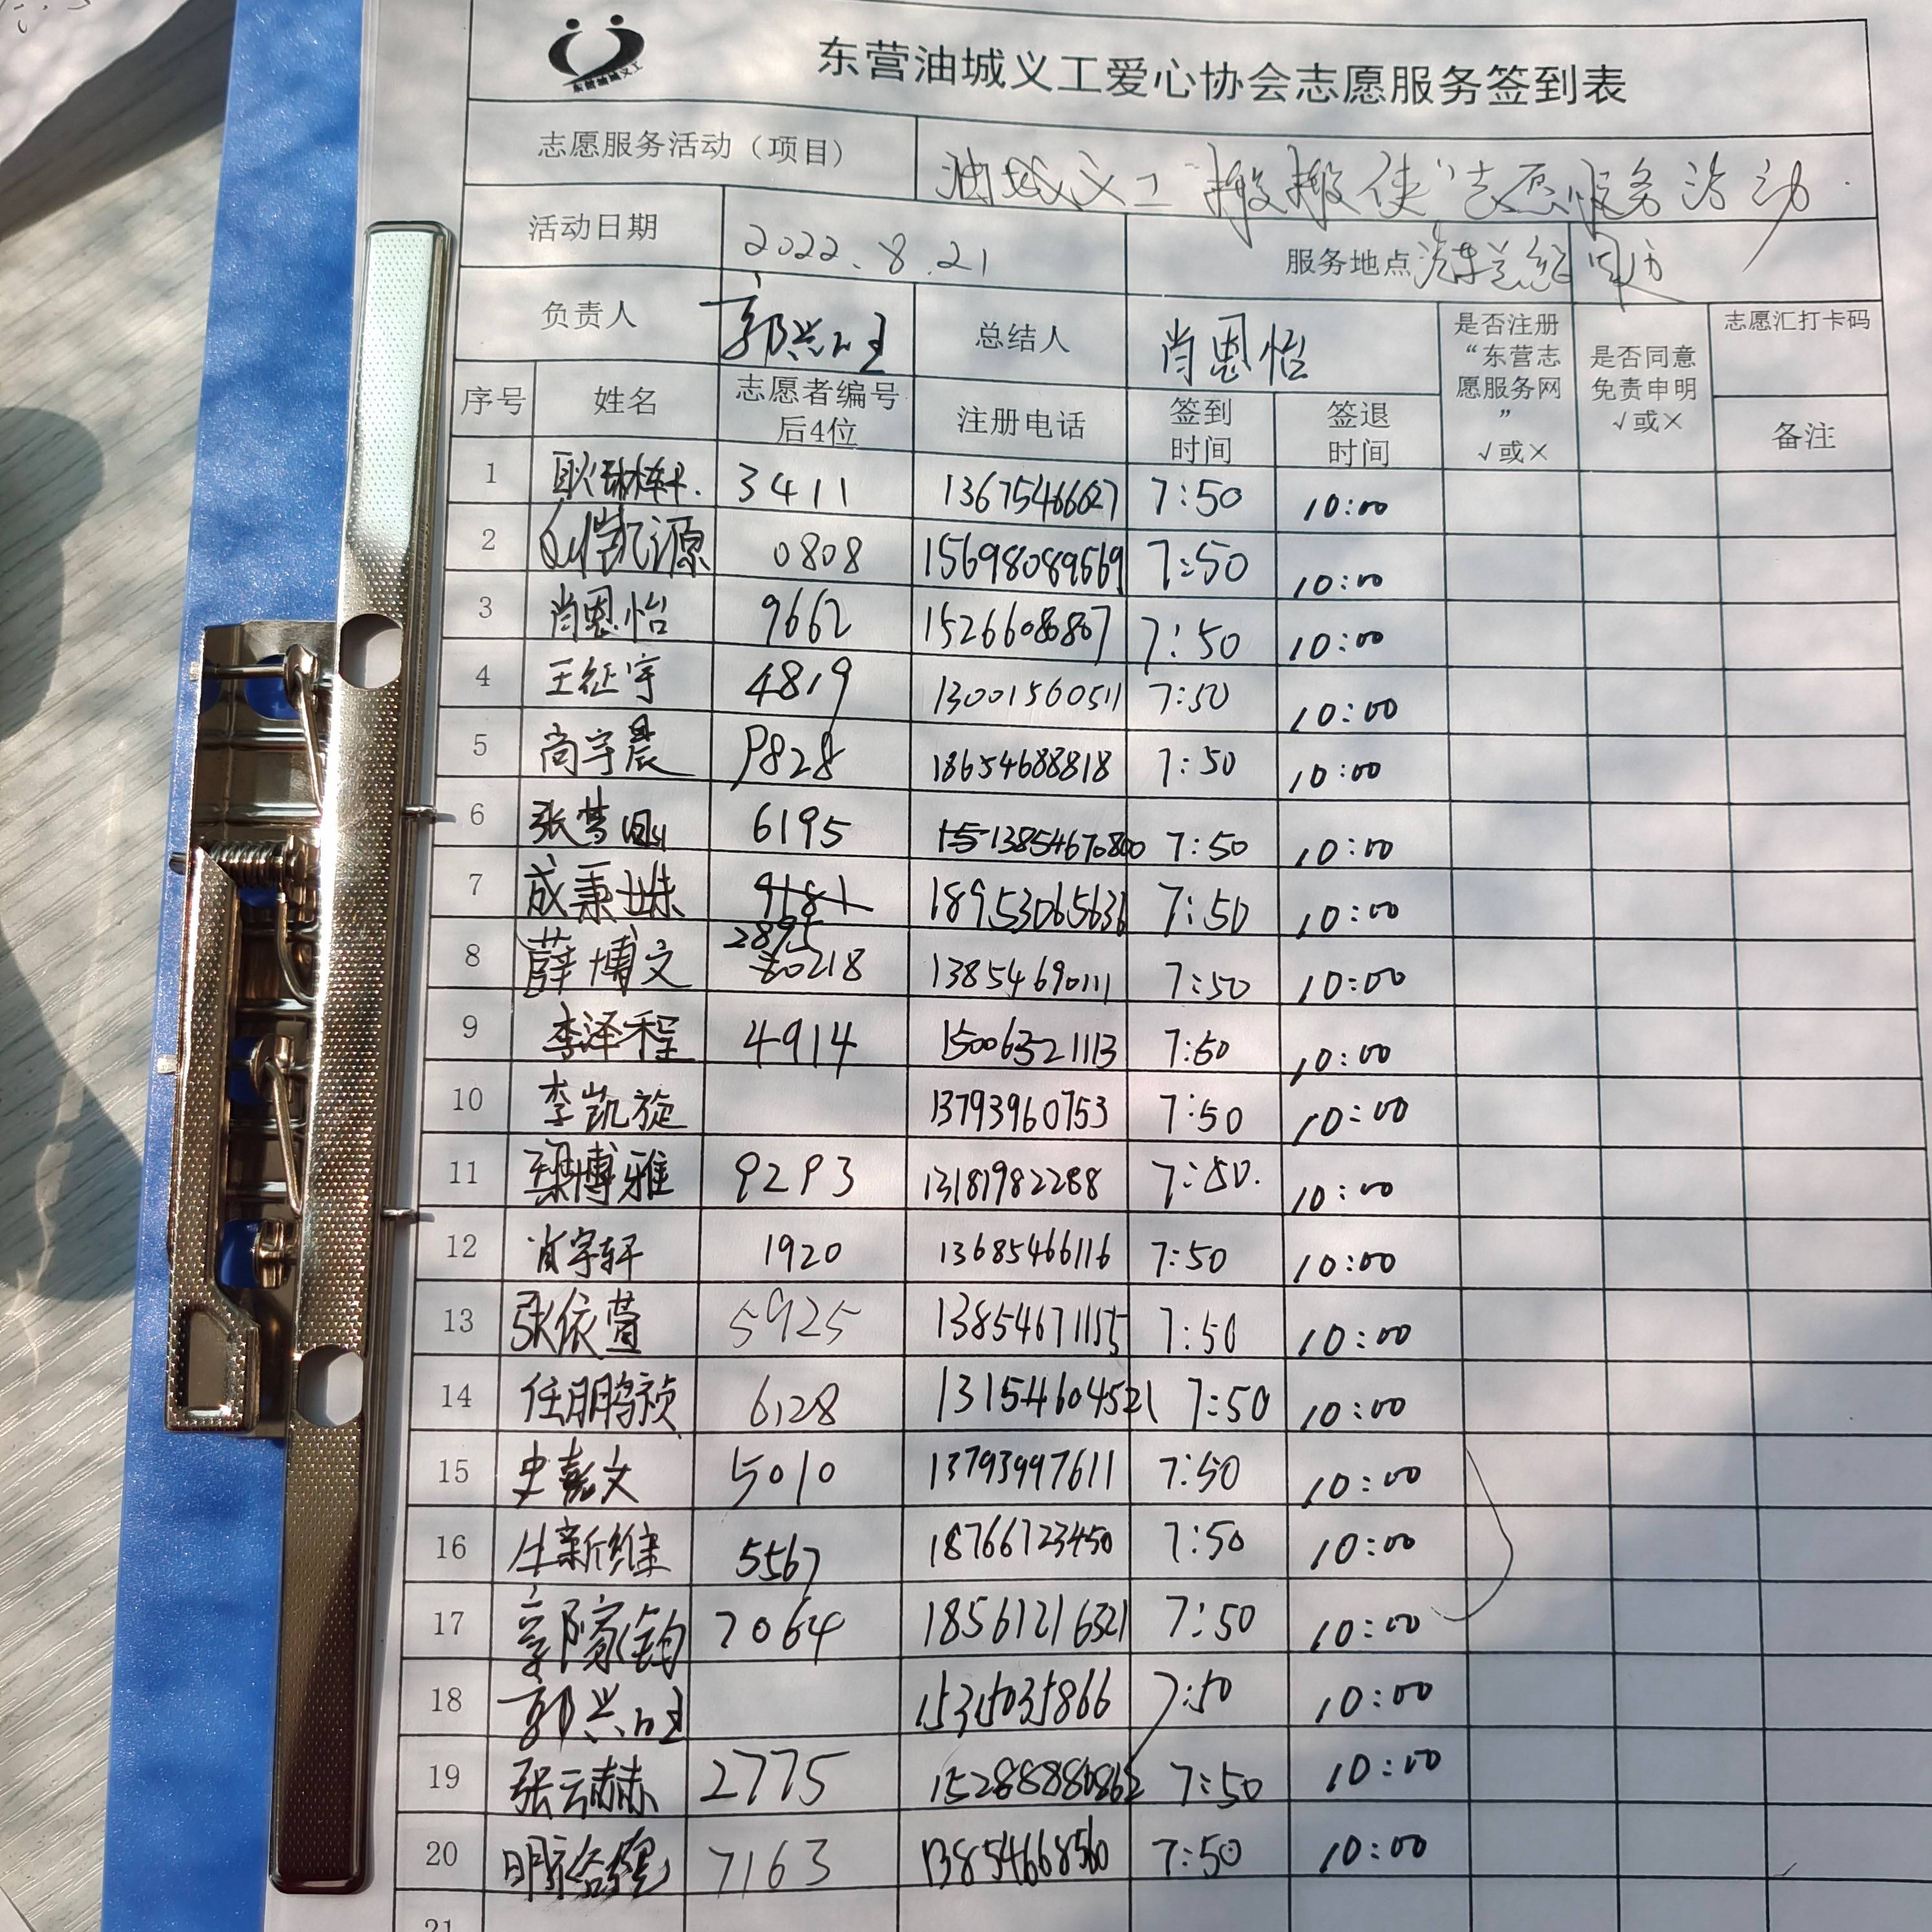 东营油城义工
东营油城义工爱心协会志愿服务签到表
志愿服务活动（项目） 油城义工“搬搬使”志愿服务活动
活动日期 2022.8.21 服务地点
负责人 总结人 肖恩怡 是否注册“东营志愿服务网” √或× 是否同意免责申明 √或× 志愿汇打卡码
序号 姓名 志愿者编号后4位 注册电话 签到时间 签退时间 备注
1 3411 13675466027 7:50 10:00
2 0808 15698089569 7:50 10:00
3 肖恩怡 9662 7:50 10:00
4 王征宇 4819 13001560511 7:50 10:00
5 尚宇晨 9828 18654688818 7:50 10:00
6 6195 13854670800 7:50 10:00
7 成秉姝 9181 18953065636 7:50 10:00
2895
8 薛博文 0218 13854690111 7:50 10:00
9 李泽程 4914 15006321113 7:50 10:00
10 李凯旋 13793960753 7:50 10:00
11 梁博雅 9293 13181982288 7:50. 10:00
12 肖宇轩 1920 13685466116 7:50 10:00
13 张依萱 5925 13854671155 7:50 10:00
14 任鹏祯 6128 13154604521 7:50 10:00
15 史嘉文 5010 13793997611 7:50 10:00
16 5567 18766723450 7:50 10:00
17 郭家钧 7064 18561216321 7:50 10:00
18 15315035866 7:50 10:00
19 张云赫 2775 7:50 10:00
20 7163 13854668560 7:50 10:00
21